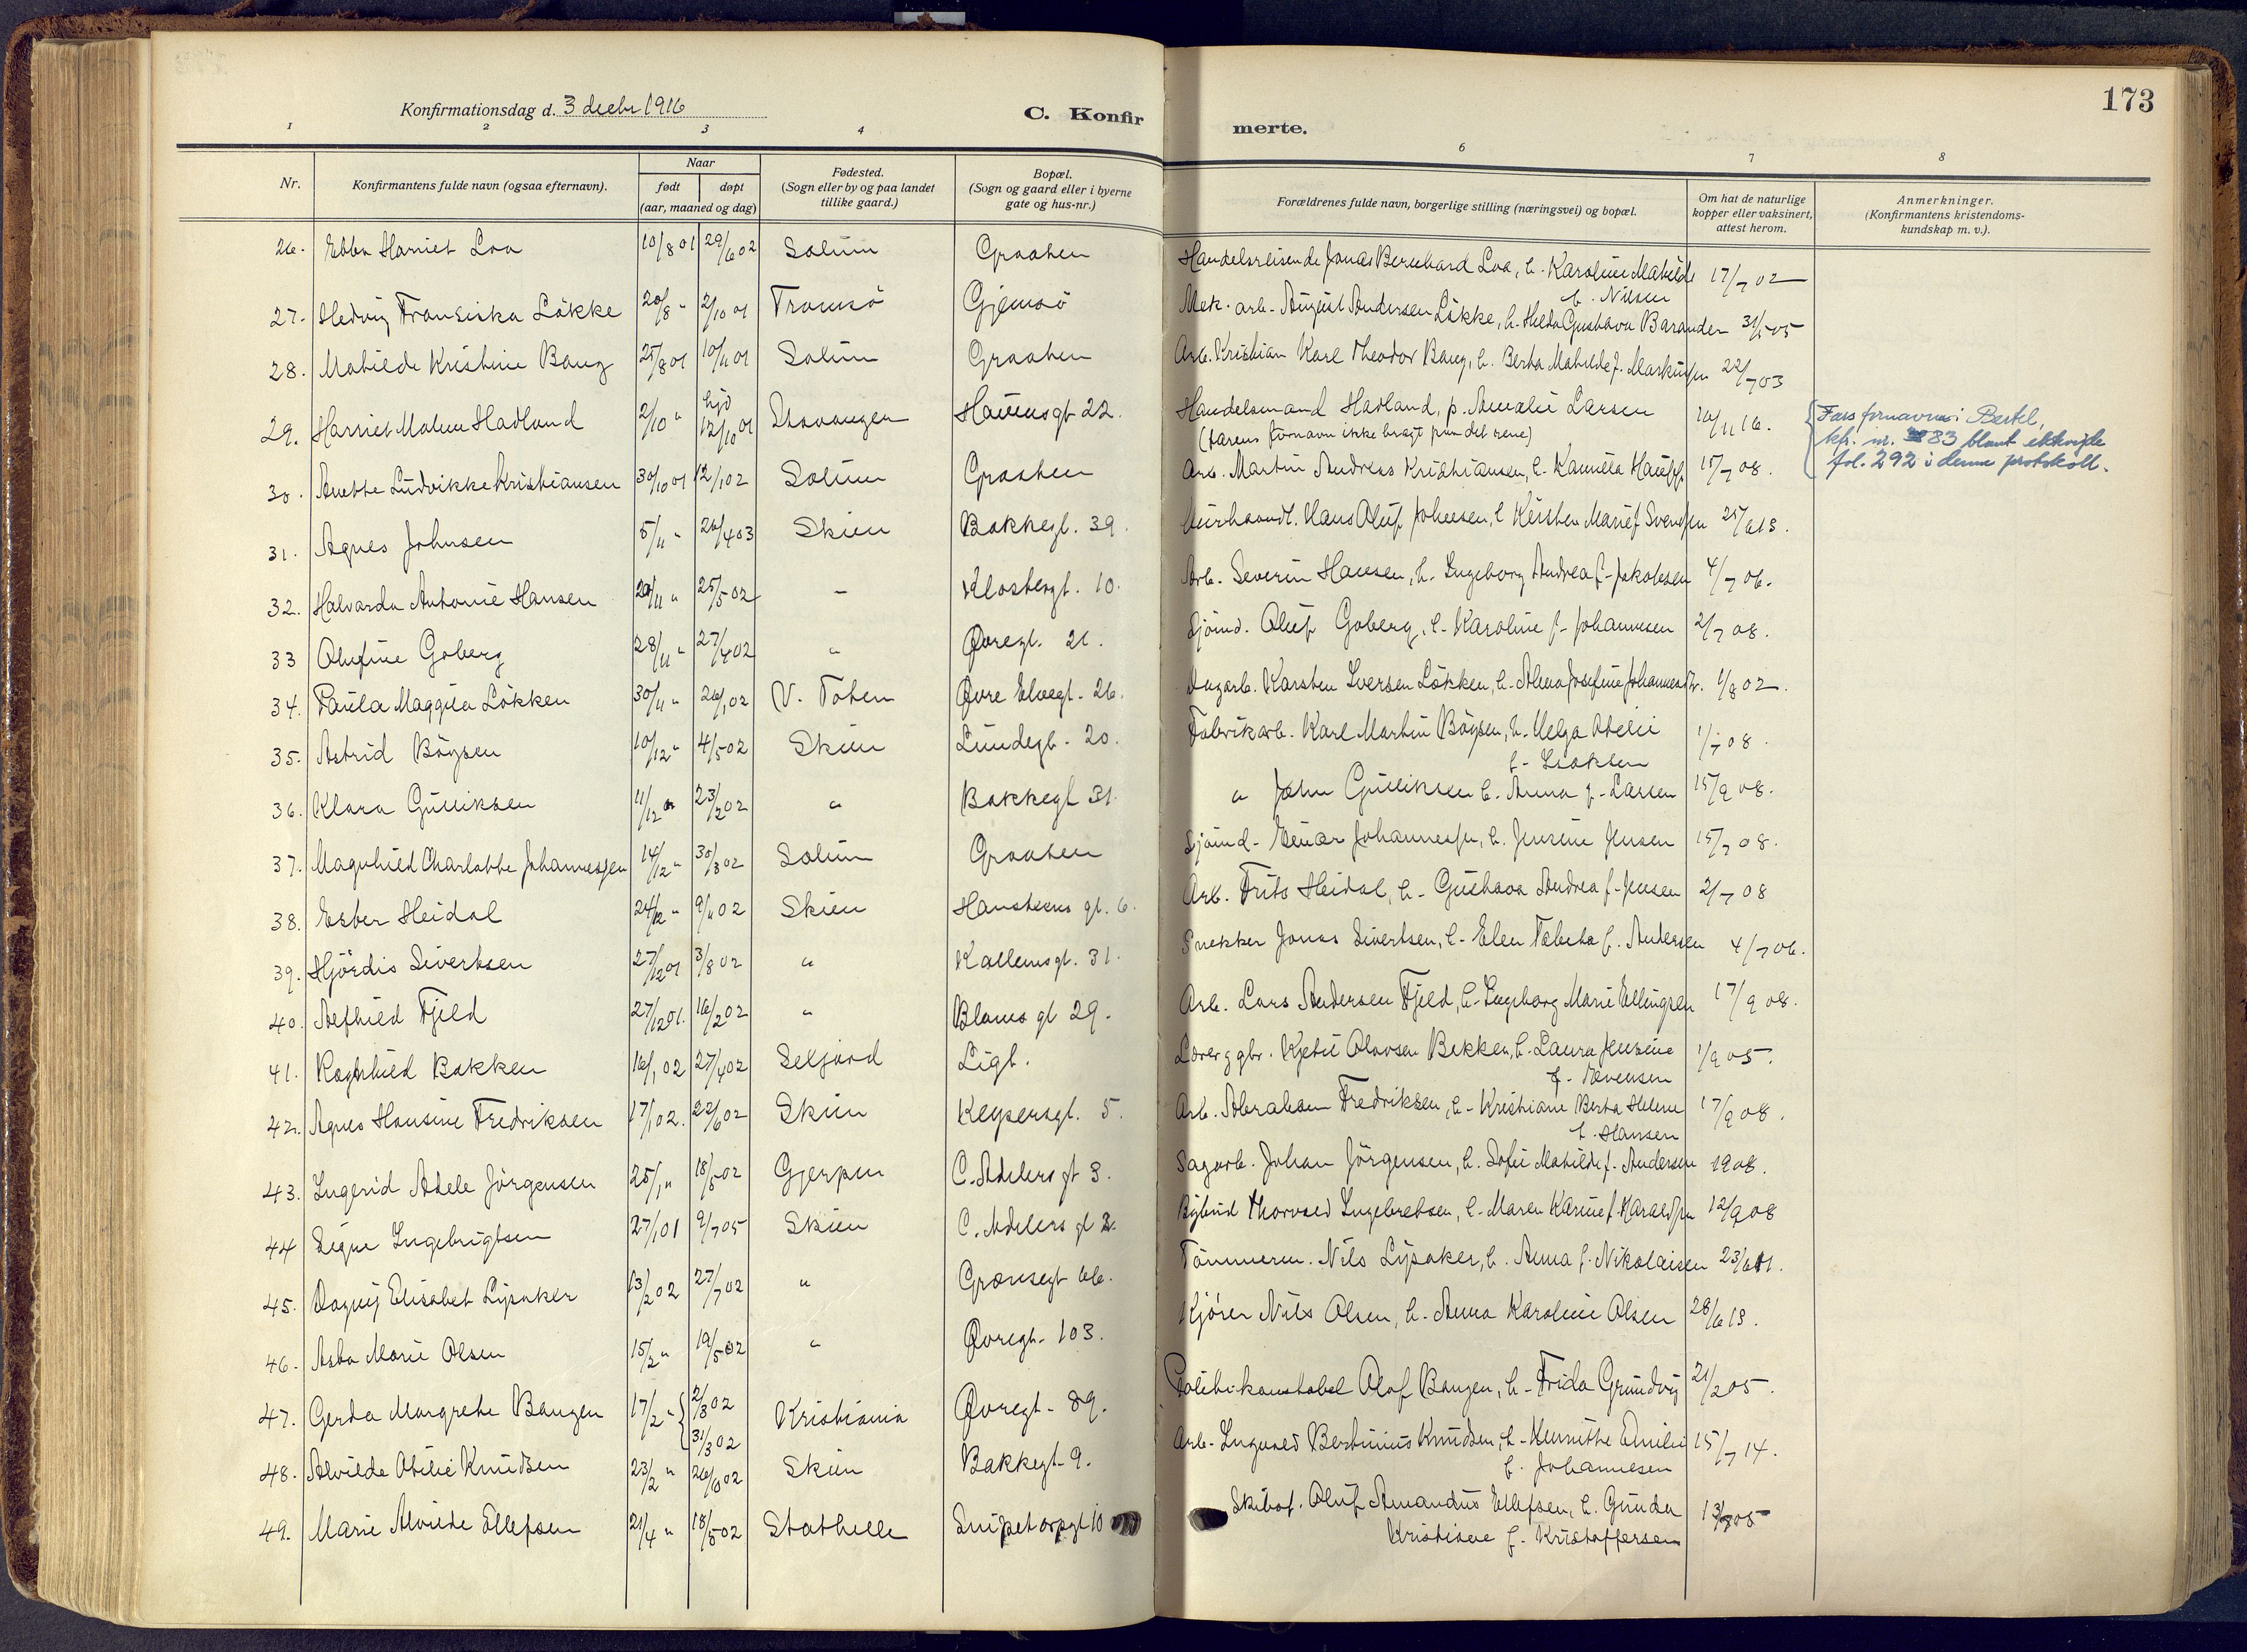 173
Konfirmationsdag d. 3 decbr 1916
C. Konfirmerte.
1 2 3 4 6 7 8
Nr.
Konfirmantens fulde navn (ogsaa efternavn).
Naar
født døpt
(aar, maaned og dag)
Fødested.
(Sogn eller by og paa landet
tillike gaard.)
Bopæl.
(Sogn og gaard eller i byerne
gate og hus-nr.)
Forældrenes fulde navn, borgerlige stilling (næringsvei) og bopæl.
Om hat de naturlige
kopper eller vaksinert,
attest herom.
Anmerkninger.
(Konfirmantens kristendoms-
kundskap m. v.).
26. Ebba Harriet Loa 10/8 01 29/6 02 Solum Graaten Handelsreisende Jonas Bernhard Loa, h. Karoline Matilde 17/7 02
f. Nilsen
27. Hedvig Fransiska Løkke 20/8 " 2/10 01 Tromsø Gjemsø Mek. arb. August Andersen Løkke, h. Hilda Gustava Barander 31/5 05
28. Matilde Kristine Baug 25/8 01 10/11 01 Solum Graaten Arb. Kristian Karl Theodor Baug, h. Berta Matilde f. Markussen 22/7 03
29. Harriet Malene Hadland 2/10 " hjd 12/10 01 Stavanger Hauens gt 22. Handelsmand Hadland, p. Amalie Larsen 10/11 16.
(farens fornavn ikke bragt paa det rene)
Fars fornavn: Bertel,
kfr. nr. 83 blant ektevigde
fol. 292 i denne protokoll.
30. Anette Ludvikke Kristiansen 30/10 01 12/1 02 Solum Graaten Arb. Martin Andreas Kristiansen, h. Kamilla Hauff 15/7 08.
31. Agnes Johnsen 5/11 " 26/4 03 Skien Bakkegt. 39. Hans Oluf Johnsen, h. Kirsten Marie f. Svendsen 25/6 13.
32. Halvarda Antonie Hansen 20/11 " 25/5 02 - Klostergt. 10. Arb. Severin Hansen, h. Ingeborg Andrea f. Jakobsen 4/7 06.
33 Olufine Goberg 28/11 " 27/4 02 " Øvregt. 21. Sjømd. Oluf Goberg, h. Karoline f. Johannesen 2/7 08.
34. Paula Maggila Løkken 30/11 " 26/1 02 V. Toten Øvre Elvegt. 26. Dagarb. Karsten Iversen Løkken, h. Alma Josefine Johannesdtr. 1/8 02.
35. Astrid Bøysen 10/12 " 4/5 02 Skien Lundegt. 20. Fabrikarb. Karl Martin Bøysen, h. Helga Otelie 1/7 08.
f. Isaksen
36. Klara Gulliksen 11/12 " 23/2 02 " Bakkegt 31. " John Gulliksen h. Anna f. Larsen 15/9 08.
37. Magnhild Charlotte Johannessen 14/12 " 30/3 02 Solum Graaten Sjømd. Einar Johannessen, h. Jensine Jensen 15/7 08.
38. Ester Heidal 24/12 " 9/11 02 Skien Hansteens gt. 6. Arb. Frits Heidal, h. Gustava Andrea f. Jensen 2/7 08
39. Hjørdis Sivertsen 27/12 01 3/8 02 " Kallems gt. 31. Snekker Jonas Sivertsen, h. Elen Tabeta f. Andersen 4/7 06.
40. Alfhild Fjeld 27/12 01. 16/2 02 " Blaus gt 29. Arb. Lars Andersen Fjeld, h. Ingeborg Marie Ellingsen 17/9 08.
41. Ragnhild Bakken 16/1 02 27/4 02 Seljord Ligt. Lærer g gbr. Kjetil Olavsen Bakken, h. Laura Jensine 1/9 05.
f. Evensen
42. Agnes Hansine Fredriksen 17/1 02. 22/6 02 Skien Keysersgt. 5. Arb. Abraham Fredriksen, h. Kristiane Berta Helene 17/9 08.
f. Hansen
43. Ingerid Adele Jørgensen 25/1 " 18/5 02 Gjerpen C. Adelers gt 3. Sagarb. Johan Jørgensen, h. Sofie Matilde f. Andersen 1908.
44 Signe Ingebrigtsen 27/1 01 9/7 05 Skien C. Adelers gt 2. Bybud Thorvald Ingebretsen, h. Maren Karine f. Haraldsen 12/9 08
45. Dagny Elisabet Lysaker 13/2 02 27/7 02 " Grænsegt 66. Tømmerm. Nils Lysaker, h. Anna f. Nikolaisen 23/6 11.
46. Asta Marie Olsen 15/2 " 19/5 02 " Øvregt. 103. Kjører Nils Olsen, h. Anna Karoline Olsen 28/6 13.
47. Gerda Margrete Bangen 17/2 " 2/3 02 31/3 02 Kristiania Øvregt. 89. Politikonstabel Olaf Bangen, h. Frida Grundvig 21/2 05.
48. Alvilde Otilie Knudsen 23/2 " 26/10 02 Skien Bakkegt. 9. Arb. Ingvald Bertinius Knudsen, h. Henriette Emilie 15/7 14.
f. Johannesen
49. Marie Alvilde Ellefsen 21/4 " 18/5 02 Stathelle Snipetorpgt 10 Skibsf. Oluf Amandus Ellefsen, h. Gunda 13/7 05
Kristiane f. Kristoffersen